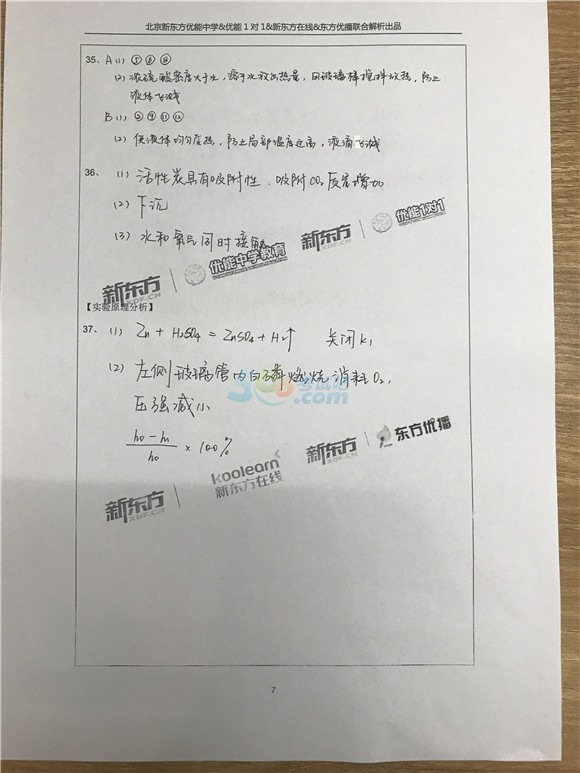 北京新东方优能中学&优能1对1&新东方在线&东方优播联合解析出品
35. A (1) ⑤⑥⑧
(2) 浓硫酸密度大于水,溶于水放出热量,用玻璃棒搅拌散热,防止
液体飞溅
B (1) ②⑨⑪⑫
(2) 使液体均匀受热,防止局部温度过高,液滴飞溅
36. (1) 活性炭具有吸附性、吸附CO₂质量增加
(2) 下沉
(3) 水和氧气同时接触
新东方
XDF.CN
优能中学教育
新东方
XDF.CN
优能1对1
【实验原理分析】
37. (1) Zn + H₂SO₄ = ZnSO₄ + H₂↑ 关闭K₁
(2) 左侧玻璃管内白磷燃烧消耗O₂,
压强减小
(h₀-h₁)/h₀ × 100%
考试吧
新东方
XDF.CN
koolearn
新东方在线
新东方
XDF.CN
东方优播
7